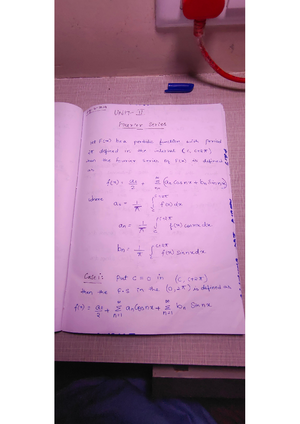 UNIT-II
Fourier Series
Let f(x) be a periodic function with period
2π defined in the interval (c, c+2π)
then the fourier series of f(x) is defined
as
f(x) = a0/2 + ∞Σn=1 (an cos nx + bn sin nx)
where a0 = 1/π ∫c^c+2π f(x) dx
an = 1/π ∫c^c+2π f(x) cos nx dx
bn = 1/π ∫c^c+2π f(x) sin nx dx.
Case i: Put C = 0 in (C, C+2π)
then the F.S in the (0, 2π) is defined as
f(x) = a0/2 + ∞Σn=1 an cos nx + ∞Σn=1 bn sin nx